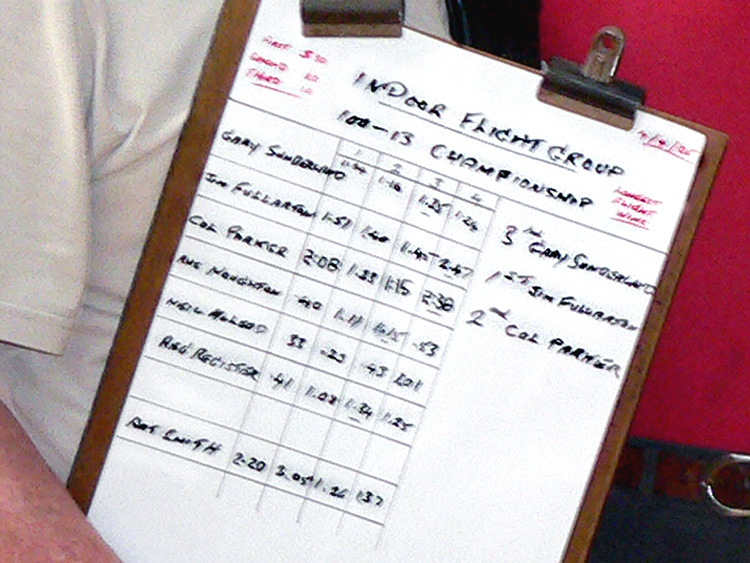 FIRST $
SECOND
THIRD
INDOOR FLIGHT GROUP
100-13 CHAMPIONSHIP
LONGEST
FLIGHT
WINS
1 2 3 4
GARY SUNDERLAND 1:16 1:25 1:26
JIM FULLARTON 1:51 1:45 2:47
COL PARKER 2:08 1:33 1:15 2:38
NAUGHTON .40 1:17 1:15 .53
NEIL McLEOD 33 .23 .43 1.01
REG REGISTER .41 1:08 1:34 1:25
SMITH 2:20 3.05 1.26 1:32
3RD GARY SUNDERLAND
1ST JIM FULLARTON
2ND COL PARKER